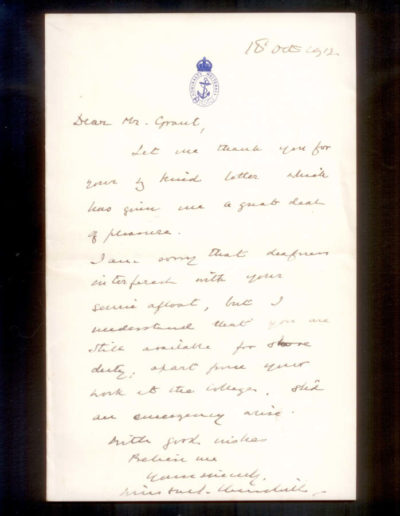 18 Oct 1912
Dear Mr. Grant,
Let me thank you for
your kind letter which
has given me a great deal
of pleasure.
I am sorry that deafness
interferes with your
service afloat, but I
understand that you are
still available for shore
duty, apart from your
work at the College, shd
an emergency arise.
With good wishes
Believe me
Yours sincerely,
Winston S. Churchill